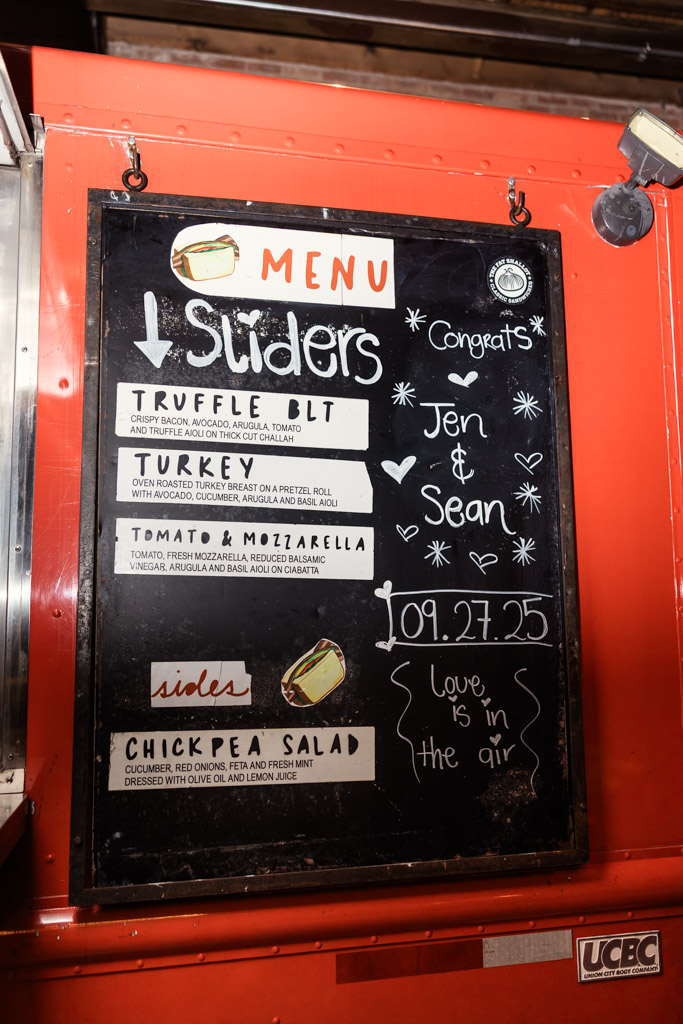 MENU
Sliders
TRUFFLE BLT
CRISPY BACON, AVOCADO, ARUGULA, TOMATO
AND TRUFFLE AIOLI ON THICK CUT CHALLAH
TURKEY
OVEN ROASTED TURKEY BREAST ON A PRETZEL ROLL
WITH AVOCADO, CUCUMBER, ARUGULA AND BASIL AIOLI
TOMATO & MOZZARELLA
TOMATO, FRESH MOZZARELLA, REDUCED BALSAMIC
VINEGAR, ARUGULA AND BASIL AIOLI ON CIABATTA
sides
CHICKPEA SALAD
CUCUMBER, RED ONIONS, FETA AND FRESH MINT
DRESSED WITH OLIVE OIL AND LEMON JUICE
THE FAT SHALLOT
CLASSIC SANDWICHES
Congrats
Jen
&
Sean
09.27.25
love
is in
the air
UCBC
UNION CITY BODY COMPANY